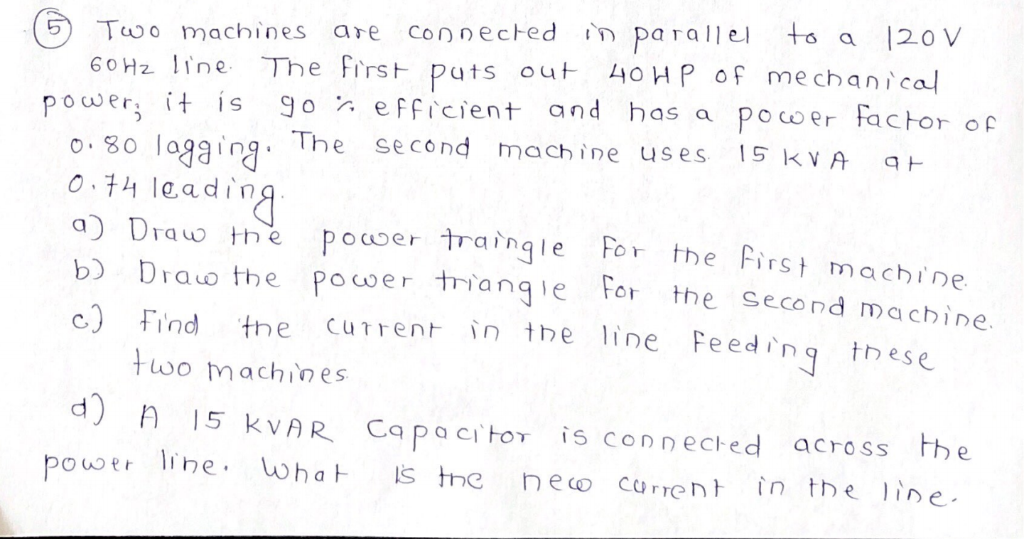 ⑤ Two machines are connected in parallel to a 120V
60Hz line. The first puts out 40HP of mechanical
power; it is 90% efficient and has a power factor of
0.80 lagging. The second machine uses 15 KVA at
0.74 leading.
a) Draw the power traingle for the first machine.
b) Draw the power triangle for the second machine.
c) Find the current in the line feeding these
two machines
d) A 15 KVAR capacitor is connected across the
power line. What is the new current in the line.